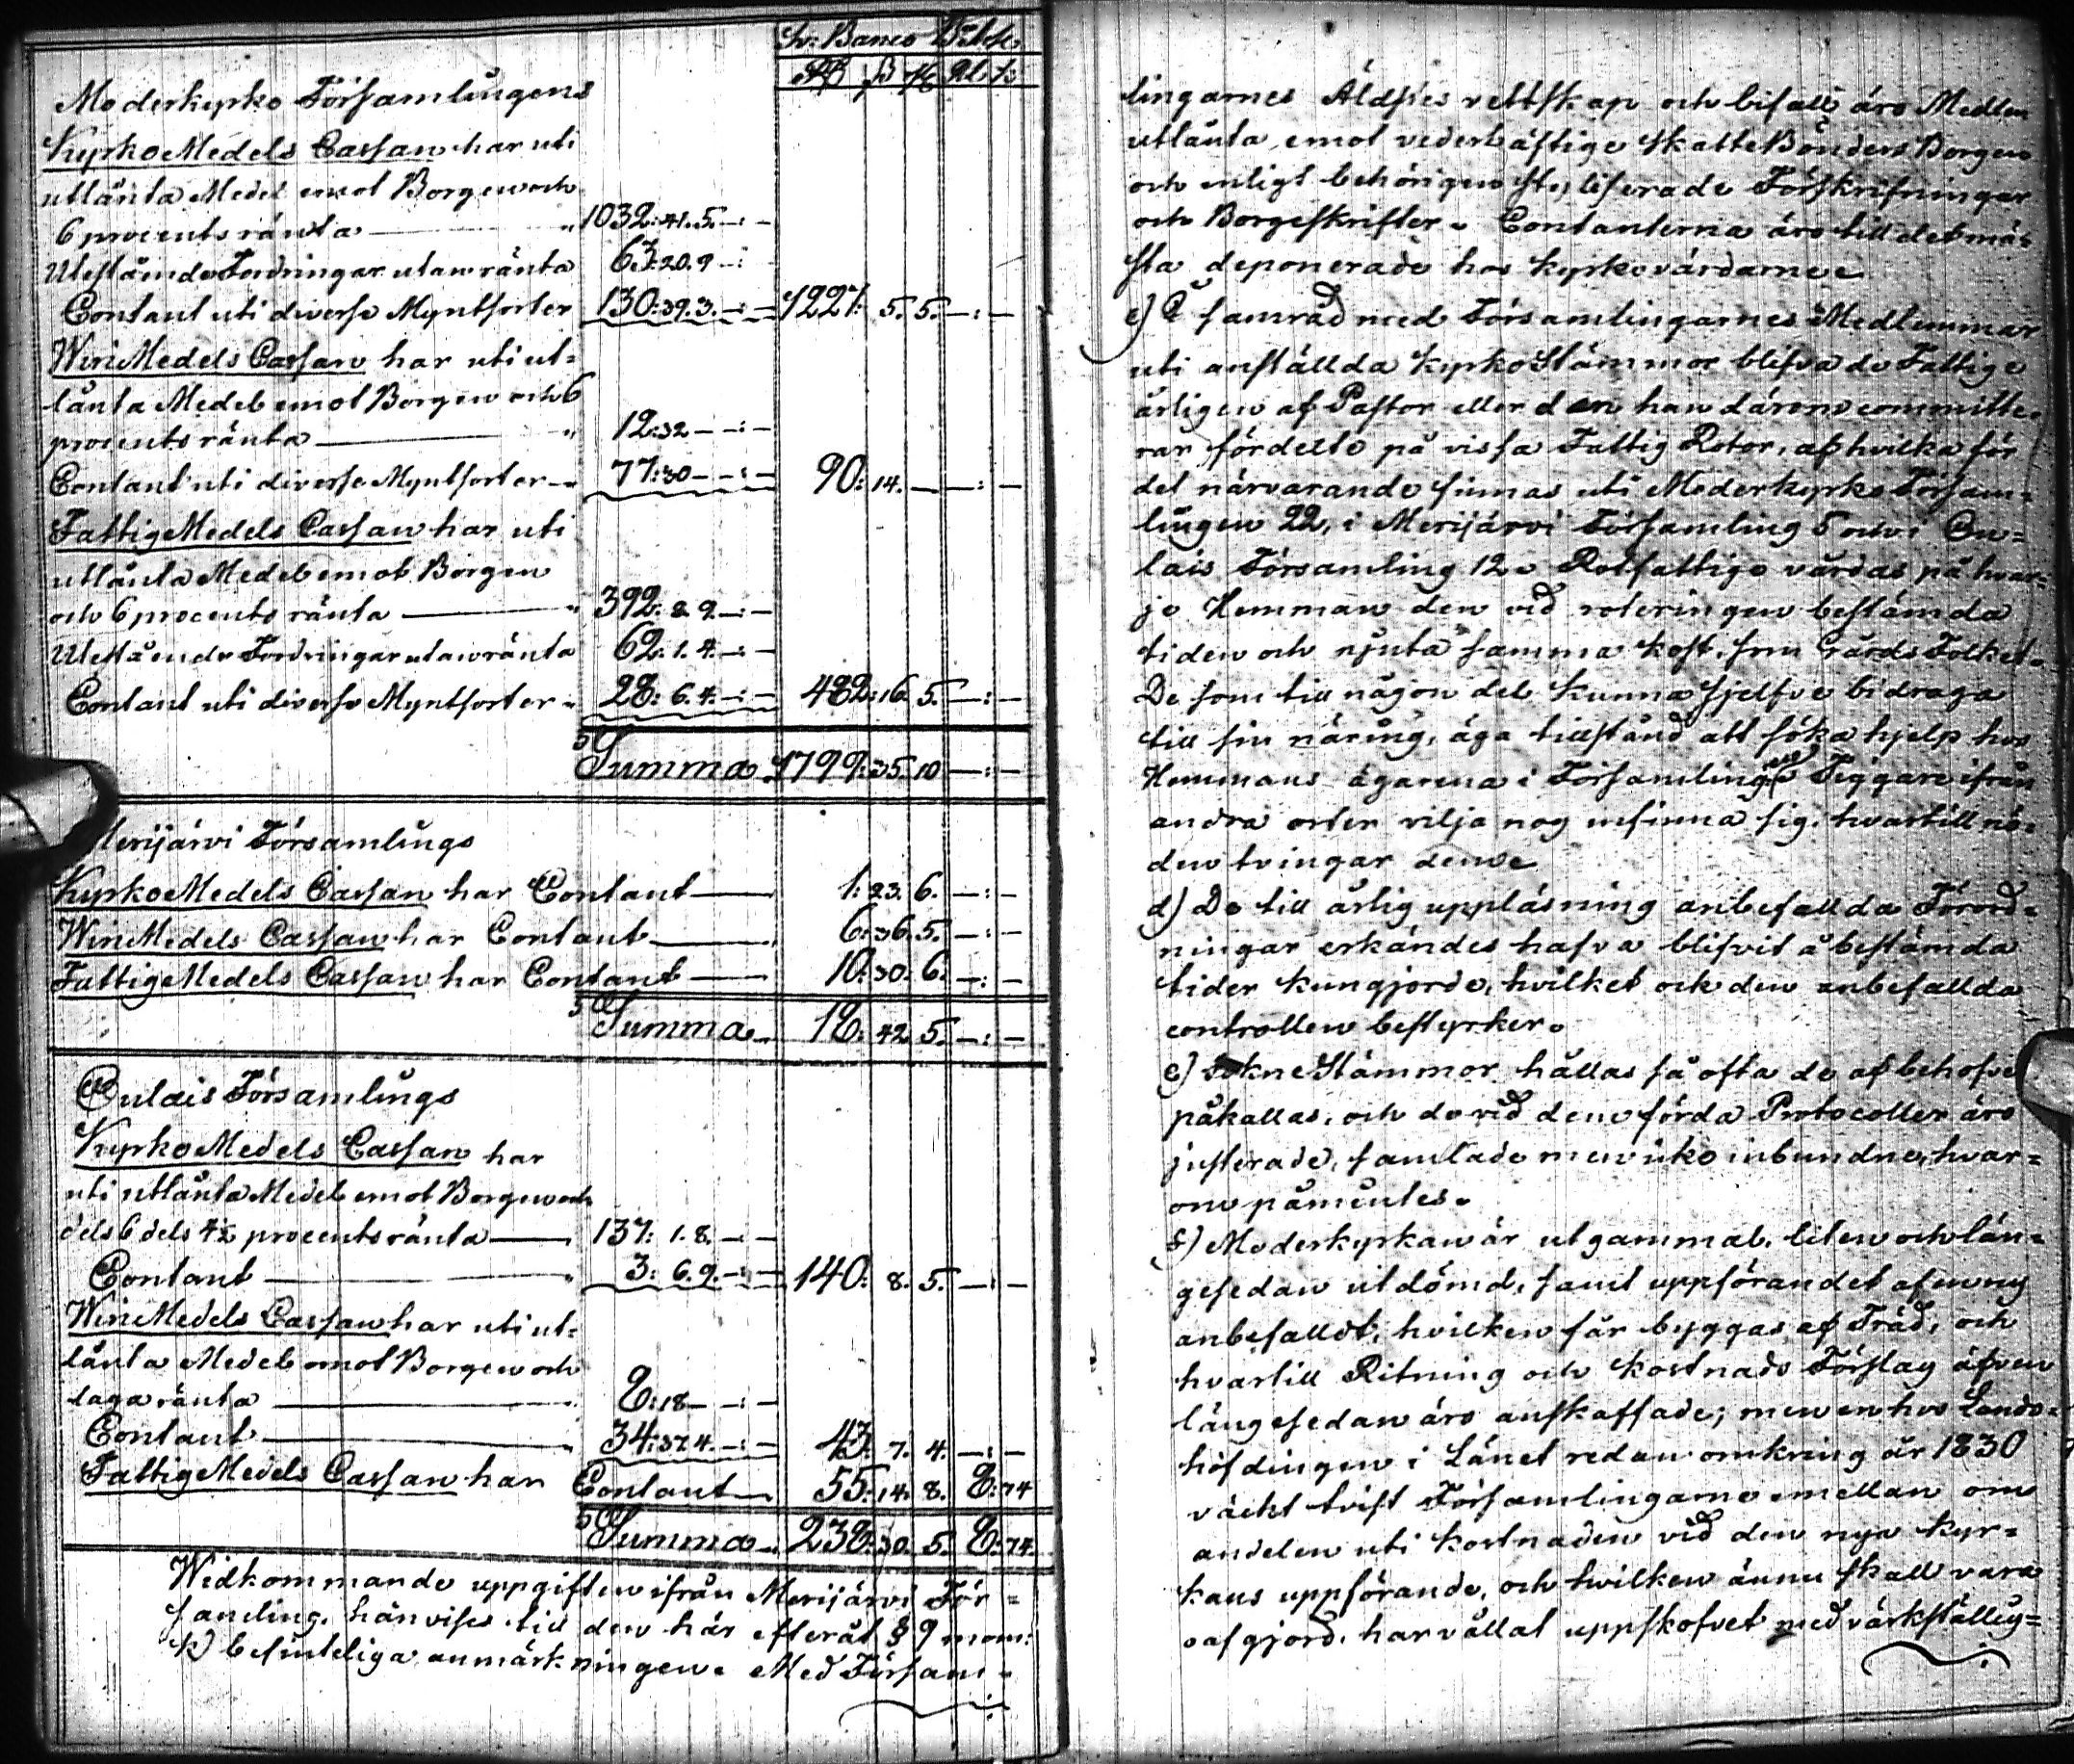 Sv: Banco
Moderkyrko Församlingens
KyrkoMedels Cassan har uti
utlånta Medel emot Borgen och
6 procents ränta — " 1032: 41. 5. —: —
Utestående Fordringar utan ränta 63: 20. 9 —: —
Contant uti diverse Myntsorter 130: 39. 3. —: — 1227: 5. 5. —: —
WinMedels Cassan har uti ut=
lånta Medel emot Borgen och 6
procents ränta — " 12: 32 — —: —
Contant uti diverse Myntsorter — 77: 30 — —: — 90: 14. — —: —
FattigMedels Cassan har uti
utlånta Medel emot Borgen
och 6 procents ränta — " 392: 8. 9. —: —
Utestående Fordringar utan ränta 62: 1. 4. —: —
Contant uti diverse Myntsorter " 28: 6. 4. —: — 482: 16. 5. —: —
Summa 1799: 35. 10 —: —
Merijärvi Församlings
KyrkoMedels Cassan har Contant — 1: 23. 6. —: —
WinMedels Cassan har Contant — 6: 36. 5. —: —
FattigMedels Cassan har Contant — 10: 30. 6. —: —
Summa 18: 42. 5. —: —
Oulais Församlings
KyrkoMedels Cassan har
uti utlånta Medel emot Borgen och
dels 6 dels 4½ procents ränta — 137: 1. 8. —: —
Contant — " 3: 6. 9. —: — 140: 8. 5. —: —
WinMedels Cassan har uti ut=
lånta Medel emot Borgen och
laga ränta — " 8: 18 — —: —
Contant — " 34: 37. 4. —: — 43: 7. 4. —: —
FattigMedels Cassan har Contant — 55: 14. 8. 8: 74
Summa 238: 30. 5. 8: 74.
Widkommande uppgiften ifrån Merijärvi För=
samling, hänvises till den här efteråt § 9 mom:
k) befinteliga anmärkningen. Med Försam=
lingarnes Äldstes vettskap och bifall äro Medlen
utlånta emot vederhäftige SkatteBönders Borgen
och enligt behörigen styliserade Förskrifningar
och Borgeskrifter. Contanterna äro till det mä=
sta deponerade hos kyrkovärdarne.
c) I samråd med Församlingarnes Medlemmar
uti anställda KyrkoStämmor blifva de Fattige
årligen af Pastor eller den han därom committe=
rar fördelte på vissa Fattig Rotor, af hvilka för
det närvarande finnas uti Moderkyrko Försam=
lingen 22, i Merijärvi Församling 5 och i Ou=
lais Församling 12. Rotfattige vårdas på hvar=
je Hemman den vid roteringen bestämda
tiden och njuta samma kost, som Gårds Folket.
De som till någon del kunna sjelfve bidraga
till sin näring, äga tillstånd att söka hjelp hos
Hemmans ägarena i Församlingen Tiggare ifrån
andra orter vilja nog infinna sig, hvartill nö=
den tvingar dem.
d) De till årlig uppläsning anbefallda Förord=
ningar erkändes hafva blifvit å bestämda
tider kungjorde, hvilket ock den anbefallda
controllen bestyrker.
e) SokneStämmor hållas så ofta de af behofve
påkallas, och de vid dem förda Protocoller äro
justerade, samlade men icke inbundne, hvar=
om påmintes.
f) Moderkyrkan är utgammal, liten och län=
gesedan utdömd, samt uppförandet af en ny
anbefalldt, hvilken får byggas af Träd, och
hvartill Ritning och Kostnads Förslag äfven
längesedan äro anskaffade; men en hos Lands=
höfdingen i Länet redan omkring år 1830
väckt tvist Församlingarne emellan om
andelen uti kostnaden vid den nya kyr=
kans uppförande, och hvilken ännu skall vara
oafgjord, har vållat uppskofvet med värkställig=